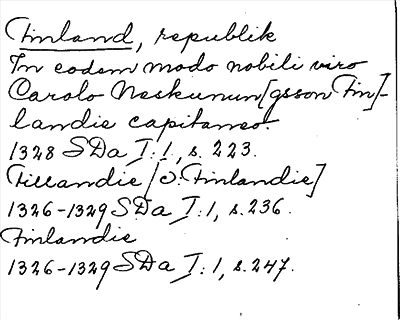 Finland, republik
In eodem modo nobili viro
Carolo Neskunun[gsson Fin]-
landie capitaneo.
1328 SDa I:1, s. 223.
Fillandie [o: Finlandie]
1326-1329 SDa I:1, s. 236.
Finlandie
1326-1329 SDa I:1, s. 247.